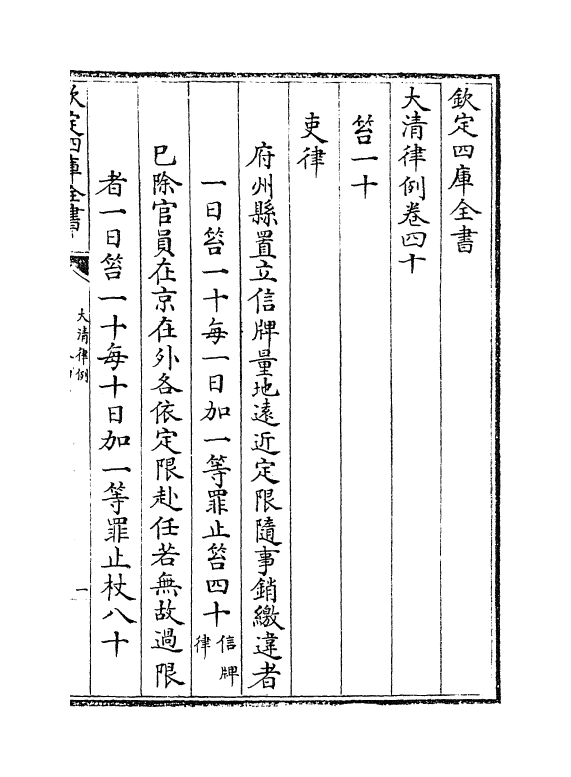 欽定四庫全書
大清律例卷四十
笞一十
吏律
府州縣置立信牌量地遠近定限隨事銷繳違者
一日笞一十每一日加一等罪止笞四十信牌律
已除官員在京在外各依定限赴任若無故過限
者一日笞一十每十日加一等罪止杖八十
欽定四庫全書
大清律例
一